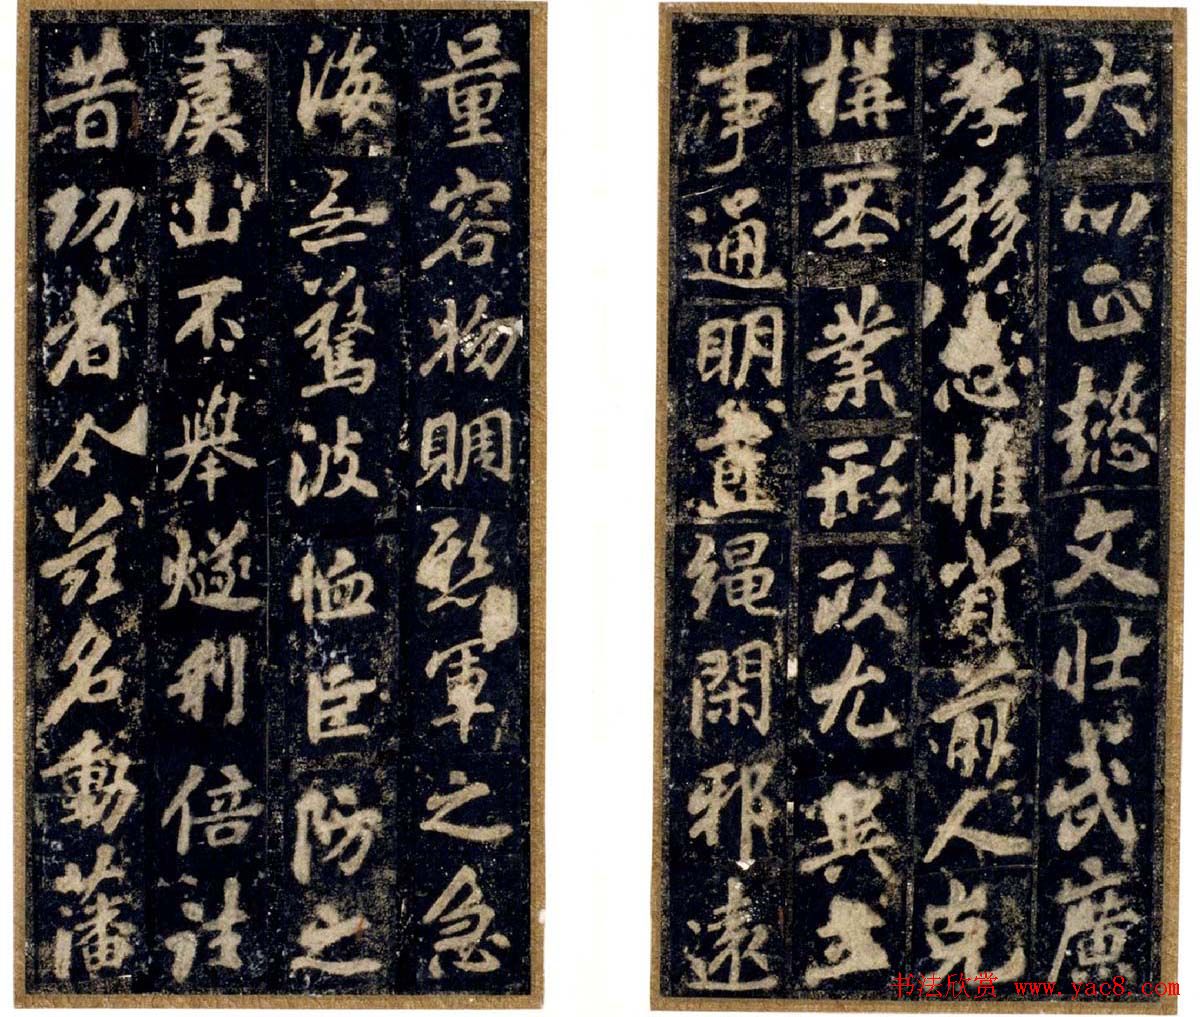 大以正懿文壯武廣
孝移忠惟肖前人克
構丕業形政尤異立
事通明直繩閑邪遠
量容物賙軍之急
海無驚波恤臣防之
虞山不舉燧利倍往
昔功省今茲名動藩
书法欣赏 www.yac8.com